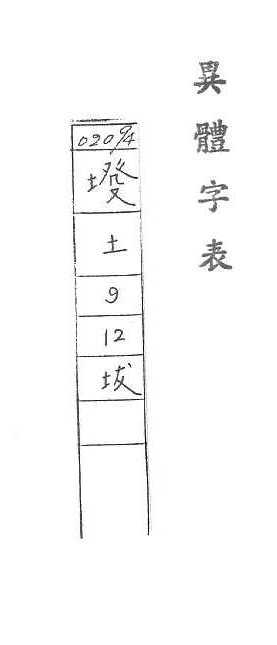 異體字表
02094
墢
土
9
12
坺